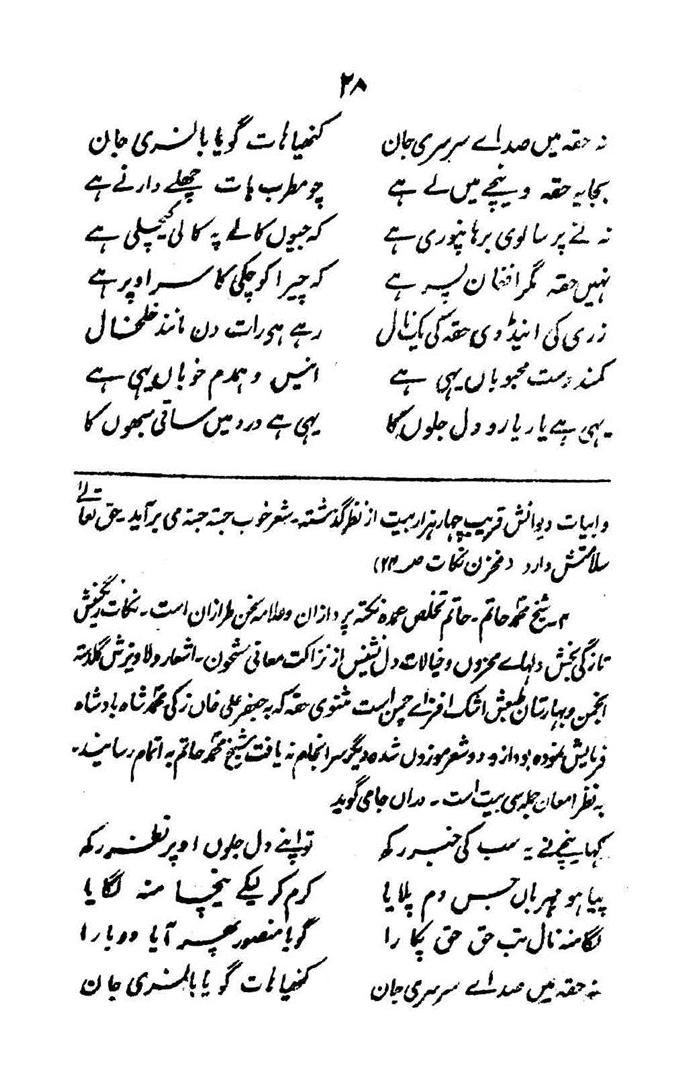 ۲۸
نہ حقہ میں صداے سرسری جان کنھیا ہات گویا بانسری جان
بجایہ حقہ و نیچے میں لے ہے چو مطرب ہات چھلے دار نے ہے
نہ نے پر سالوی برہانپوری ہے کہ جیوں کالے پہ کالی کیچلی ہے
نہیں حقہ مگر افغان پسر ہے کہ چیرا کوچکی کا سر اوپر ہے
زری کی اینڈوی حقہ کی یک نال رہے ہی رات دن مانند خلخال
کمند دست محبوباں یہی ہے انیس و ہمدم خوباں یہی ہے
یہی ہے یار یارو دل جلوں کا یہی ہے درد میں ساقی سبھوں کا
و ابیات دیوانش قریب چہار ہزار بیت از نظر گذشتہ۔ شعر خوب جستہ جستہ می برآید۔ حق تعالیٰ
سلامتش دارد (مخزن نکات صہ ۲۴)
۳۔ شیخ محمد حاتم۔ حاتم تخلص عمدہ نکتہ پردازان و علامہ سخن طرازان است۔ نکات رنگینش
تازگی بخش دلہاے محزوں و خیالات دل نشیں از نزاکت معانی مشحون۔ اشعار دلاویزش گلدستہ
انجمن و بہارستان طبعش اشک افزاے چمن است مثنوی حقہ کہ بہ جعفر علی خاں زکی محمد شاہ بادشاہ
فرمایش نمودہ بود ازو دو شعر موزوں شدہ دیگر سرانجام نہ یافت شیخ محمد حاتم بہ اتمام رسانید۔
بہ نظر امعان جملہ سی بیت است۔ دراں جا می گوید
کہا نیچے نے یہ سب کی خبر رکھ تو اپنے دل جلوں اوپر نظر رکھ
پیا ہو مہرباں جس دم پلایا کرم کر لیکے نیچا منہ لگایا
لگا منہ نال تب حق حق پکارا گویا منصور پھر آیا دوبارا
نہ حقہ میں صداے سرسری جان کنھیا ہات گویا بانسری جان